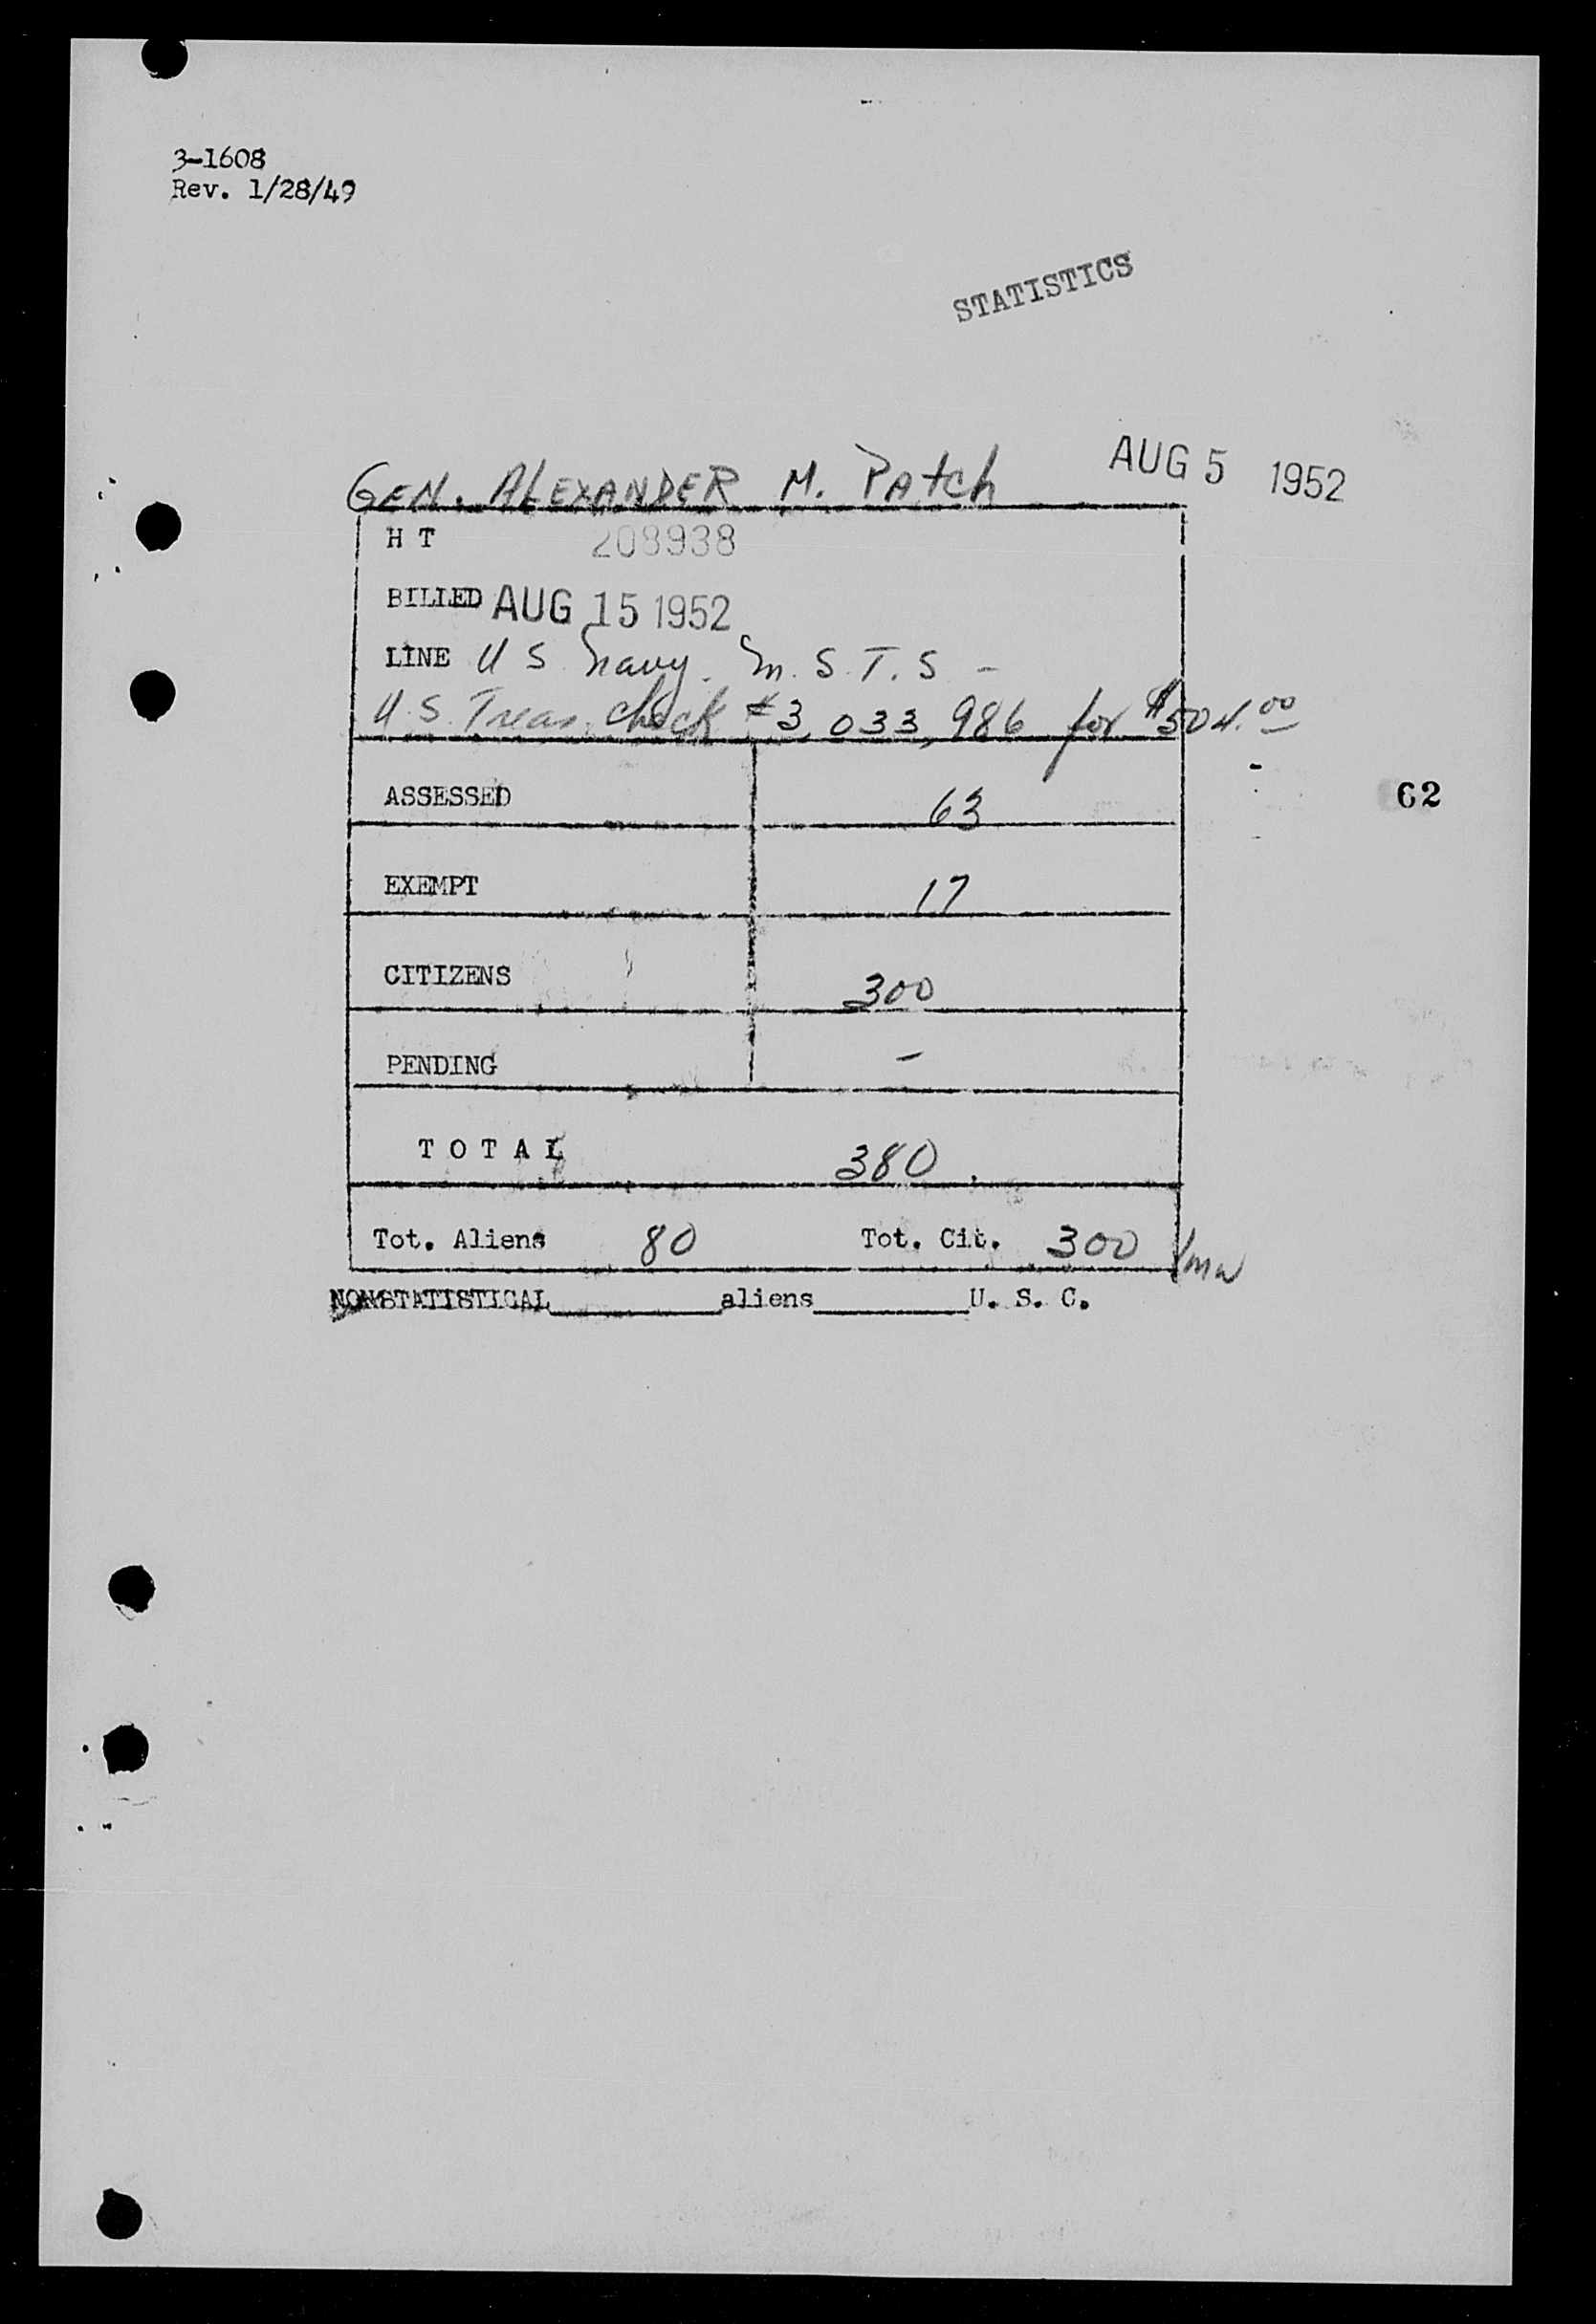 3-1608
Rev. 1/28/49
STATISTICS
GEN. ALEXANDER M. Patch AUG 5 1952
H T 208938
BILLED AUG 15 1952
LINE U S Navy. M. S. T. S -
U.S. Treas. check # 3,033,986 for $504.00
ASSESSED 63
62
EXEMPT 17
CITIZENS 300
PENDING -
T O T A L 380
Tot. Aliens 80 Tot. Cit. 300
NONSTATISTICAL aliens U. S. C.